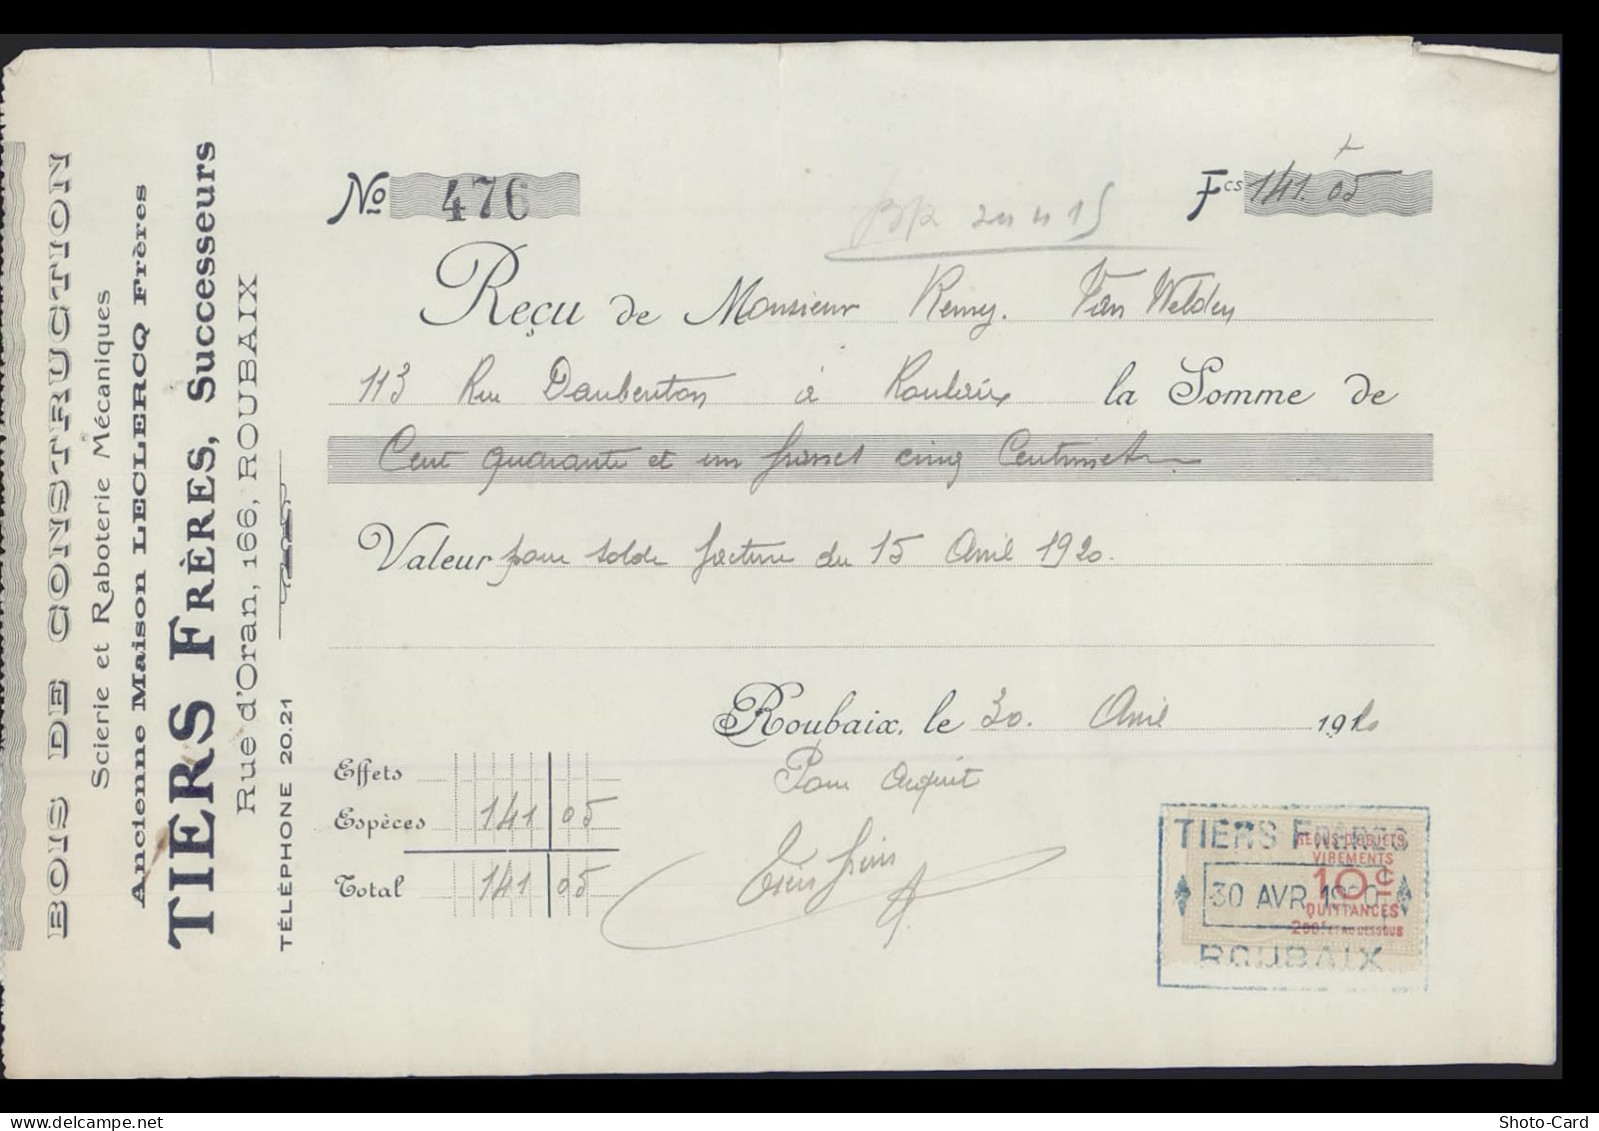 BOIS DE CONSTRUCTION
Scierie et Raboterie Mécaniques
Ancienne Maison LECLERCQ Frères
TIERS FRÈRES, Successeurs
Rue d'Oran, 166, ROUBAIX
TÉLÉPHONE 20.21
No 476 Fcs 141.05
Reçu de Monsieur Remy. Van Welden
113 Rue Daubenton à Roubaix la Somme de
Cent quarante et un francs cinq Centimes
Valeur pour solde facture du 15 Avril 1920.
Roubaix, le 30. Avril 1920
Pour Acquit
Tiers frères
Effets
Espèces 141 05
Total 141 05
TIERS FRÈRES
30 AVR 1920
ROUBAIX
REÇUS D'OBJETS
VIREMENTS
10c
QUITTANCES
200f ET AU DESSOUS
Shoto-Card